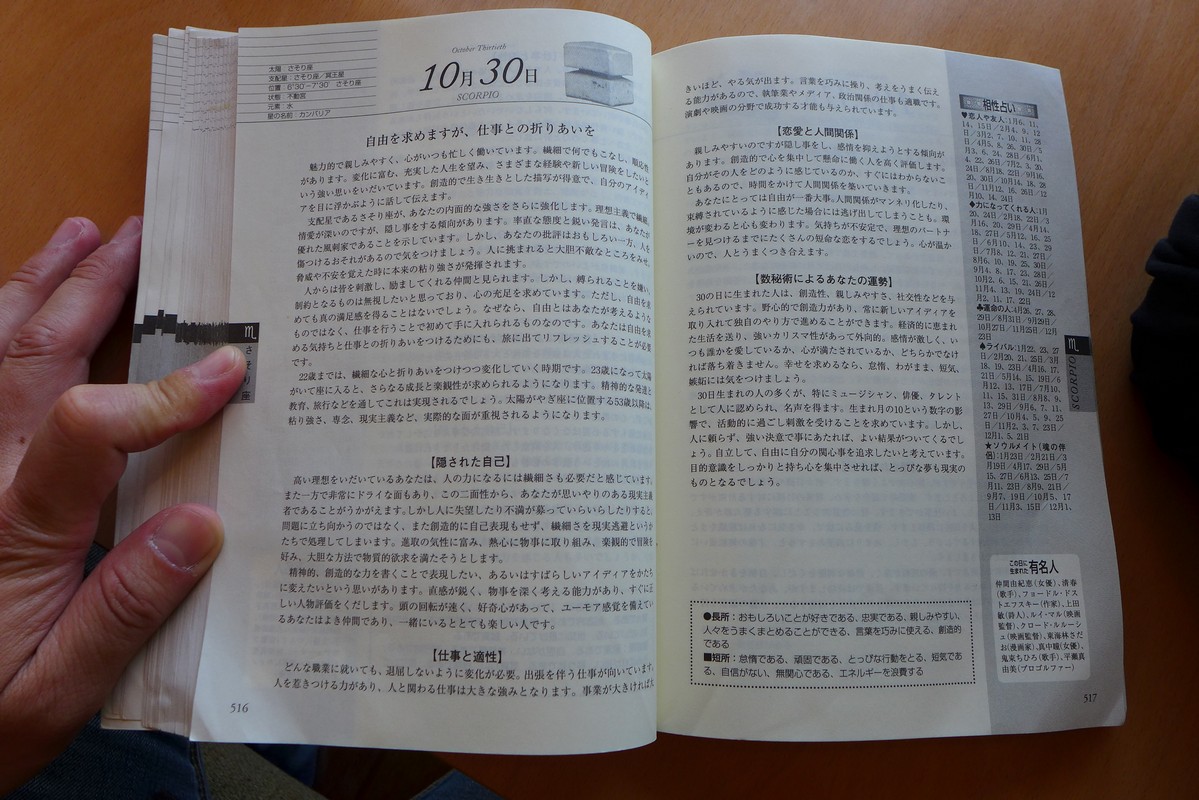 太陽：さそり座
支配星：さそり座／冥王星
位置：6°30'－7°30' さそり座
状態：不動宮
元素：水
星の名前：カンバリア
October Thirtieth
10月30日
SCORPIO
自由を求めますが、仕事との折りあいを
魅力的で親しみやすく、心がいつも忙しく働いています。繊細で何でもこなし、順応性
があります。変化に富む、充実した人生を望み、さまざまな経験や新しい冒険をしたいと
いう強い思いをいだいています。創造的で生き生きとした描写が得意で、自分のアイディ
アを目に浮かぶように話して伝えます。
支配星であるさそり座が、あなたの内面的な強さをさらに強化します。理想主義で繊細、
情愛が深いのですが、隠し事をする傾向があります。率直な態度と鋭い発言は、あなたが
優れた風刺家であることを示しています。しかし、あなたの批評はおもしろい一方、人を
傷つけるおそれがあるので気をつけましょう。人に挑まれると大胆不敵なところをみせ、
脅威や不安を覚えた時に本来の粘り強さが発揮されます。
人からは皆を刺激し、励ましてくれる仲間と見られます。しかし、縛られることを嫌い、
制約となるものは無視したいと思っており、心の充足を求めています。ただし、自由を求
めても真の満足感を得ることはないでしょう。なぜなら、自由とはあなたが考えるような
ものではなく、仕事を行うことで初めて手に入れられるものなのです。あなたは自由を求
める気持ちと仕事との折りあいをつけるためにも、旅に出てリフレッシュすることが必要
です。
22歳までは、繊細な心と折りあいをつけつつ変化していく時期です。23歳になって太陽
がいて座に入ると、さらなる成長と楽観性が求められるようになります。精神的な発達と
教育、旅行などを通してこれは実現されるでしょう。太陽がやぎ座に位置する53歳以降は、
粘り強さ、専念、現実主義など、実際的な面が重視されるようになります。
【隠された自己】
高い理想をいだいているあなたは、人の力になるには繊細さも必要だと感じています。
また一方で非常にドライな面もあり、この二面性から、あなたが思いやりのある現実主義
者であることがうかがえます。しかし人に失望したり不満が募っていらいらしたりすると、
問題に立ち向かうのではなく、また創造的に自己表現もせず、繊細さを現実逃避というか
たちで処理してしまいます。進取の気性に富み、熱心に物事に取り組み、楽観的で冒険を
好み、大胆な方法で物質的欲求を満たそうとします。
精神的、創造的な力を書くことで表現したい、あるいはすばらしいアイディアをかたち
に変えたいという思いがあります。直感が鋭く、物事を深く考える能力があり、すぐに正
しい人物評価をくだします。頭の回転が速く、好奇心があって、ユーモア感覚を備えてい
るあなたはよき仲間であり、一緒にいるととても楽しい人です。
【仕事と適性】
どんな職業に就いても、退屈しないように変化が必要。出張を伴う仕事が向いています。
人を惹きつける力があり、人と関わる仕事は大きな強みとなります。事業が大きければ大
516
♏
さそり座
きいほど、やる気が出ます。言葉を巧みに操り、考えをうまく伝え
る能力があるので、執筆業やメディア、政治関係の仕事も適職です。
演劇や映画の分野で成功する才能も与えられています。
【恋愛と人間関係】
親しみやすいのですが隠し事をし、感情を抑えようとする傾向が
あります。創造的で心を集中して懸命に働く人を高く評価します。
自分がその人をどのように感じているのか、すぐにはわからないこ
ともあるので、時間をかけて人間関係を築いていきます。
あなたにとっては自由が一番大事。人間関係がマンネリ化したり、
束縛されているように感じた場合には逃げ出してしまうことも。環
境が変わると心も変わります。気持ちが不安定で、理想のパートナ
ーを見つけるまでにたくさんの短命な恋をするでしょう。心が温か
いので、人とうまくつき合えます。
【数秘術によるあなたの運勢】
30の日に生まれた人は、創造性、親しみやすさ、社交性などを与
えられています。野心的で創造力があり、常に新しいアイディアを
取り入れて独自のやり方で進めることができます。経済的に恵まれ
た生活を送り、強いカリスマ性があって外向的。感情が激しく、い
つも誰かを愛しているか、心が満たされているか、どちらかでなけ
れば落ち着きません。幸せを求めるなら、怠惰、わがまま、短気、
嫉妬には気をつけましょう。
30日生まれの人の多くが、特にミュージシャン、俳優、タレント
として人に認められ、名声を得ます。生まれ月の10という数字の影
響で、活動的に過ごし刺激を受けることを求めています。しかし、
人に頼らず、強い決意で事にあたれば、よい結果がついてくるでし
ょう。自立して、自由に自分の関心事を追求したいと考えています。
目的意識をしっかりと持ち心を集中させれば、とっぴな夢も現実の
ものとなるでしょう。
●長所：おもしろいことが好きである、忠実である、親しみやすい、
人々をうまくまとめることができる、言葉を巧みに使える、創造的
である
■短所：怠惰である、頑固である、とっぴな行動をとる、短気であ
る、自信がない、無関心である、エネルギーを浪費する
相性占い
♥恋人や友人：1月6、11、
14、15日／2月4、9、12
日／3月2、7、10、11、28
日／4月5、8、26、30日／5
月3、6、24、28日／6月1、
4、22、26日／7月2、3、20、
24日／8月18、22日／9月16、
20、30日／10月14、18、28
日／11月12、16、26日／12
月10、14、24日
◆力になってくれる人：1月
♣運命の人：4月26、27、28、
29日／8月31日／9月29日／
10月27日／11月25日／12月
23日
♠ライバル：1月22、23、27
★ソウルメイト（魂の伴
侶）：1月23日／2月21日／3
月19日／4月17、29日／5月
15、27日／6月13、25日／7
月11、23日／8月9、21日／
9月7、19日／10月5、17
日／11月3、15日／12月1、
13日
♏
SCORPIO
この日に生まれた有名人
仲間由紀恵（女優）、清春
（歌手）、フョードル・ドス
トエフスキー（作家）、上田
敏（詩人）、ルイ・マル（映画
監督）、クロード・ルルーシ
ュ（映画監督）、東海林さだ
お（漫画家）、真中瞳（女優）、
鬼束ちひろ（歌手）、平瀬真
由美（プロゴルファー）
517